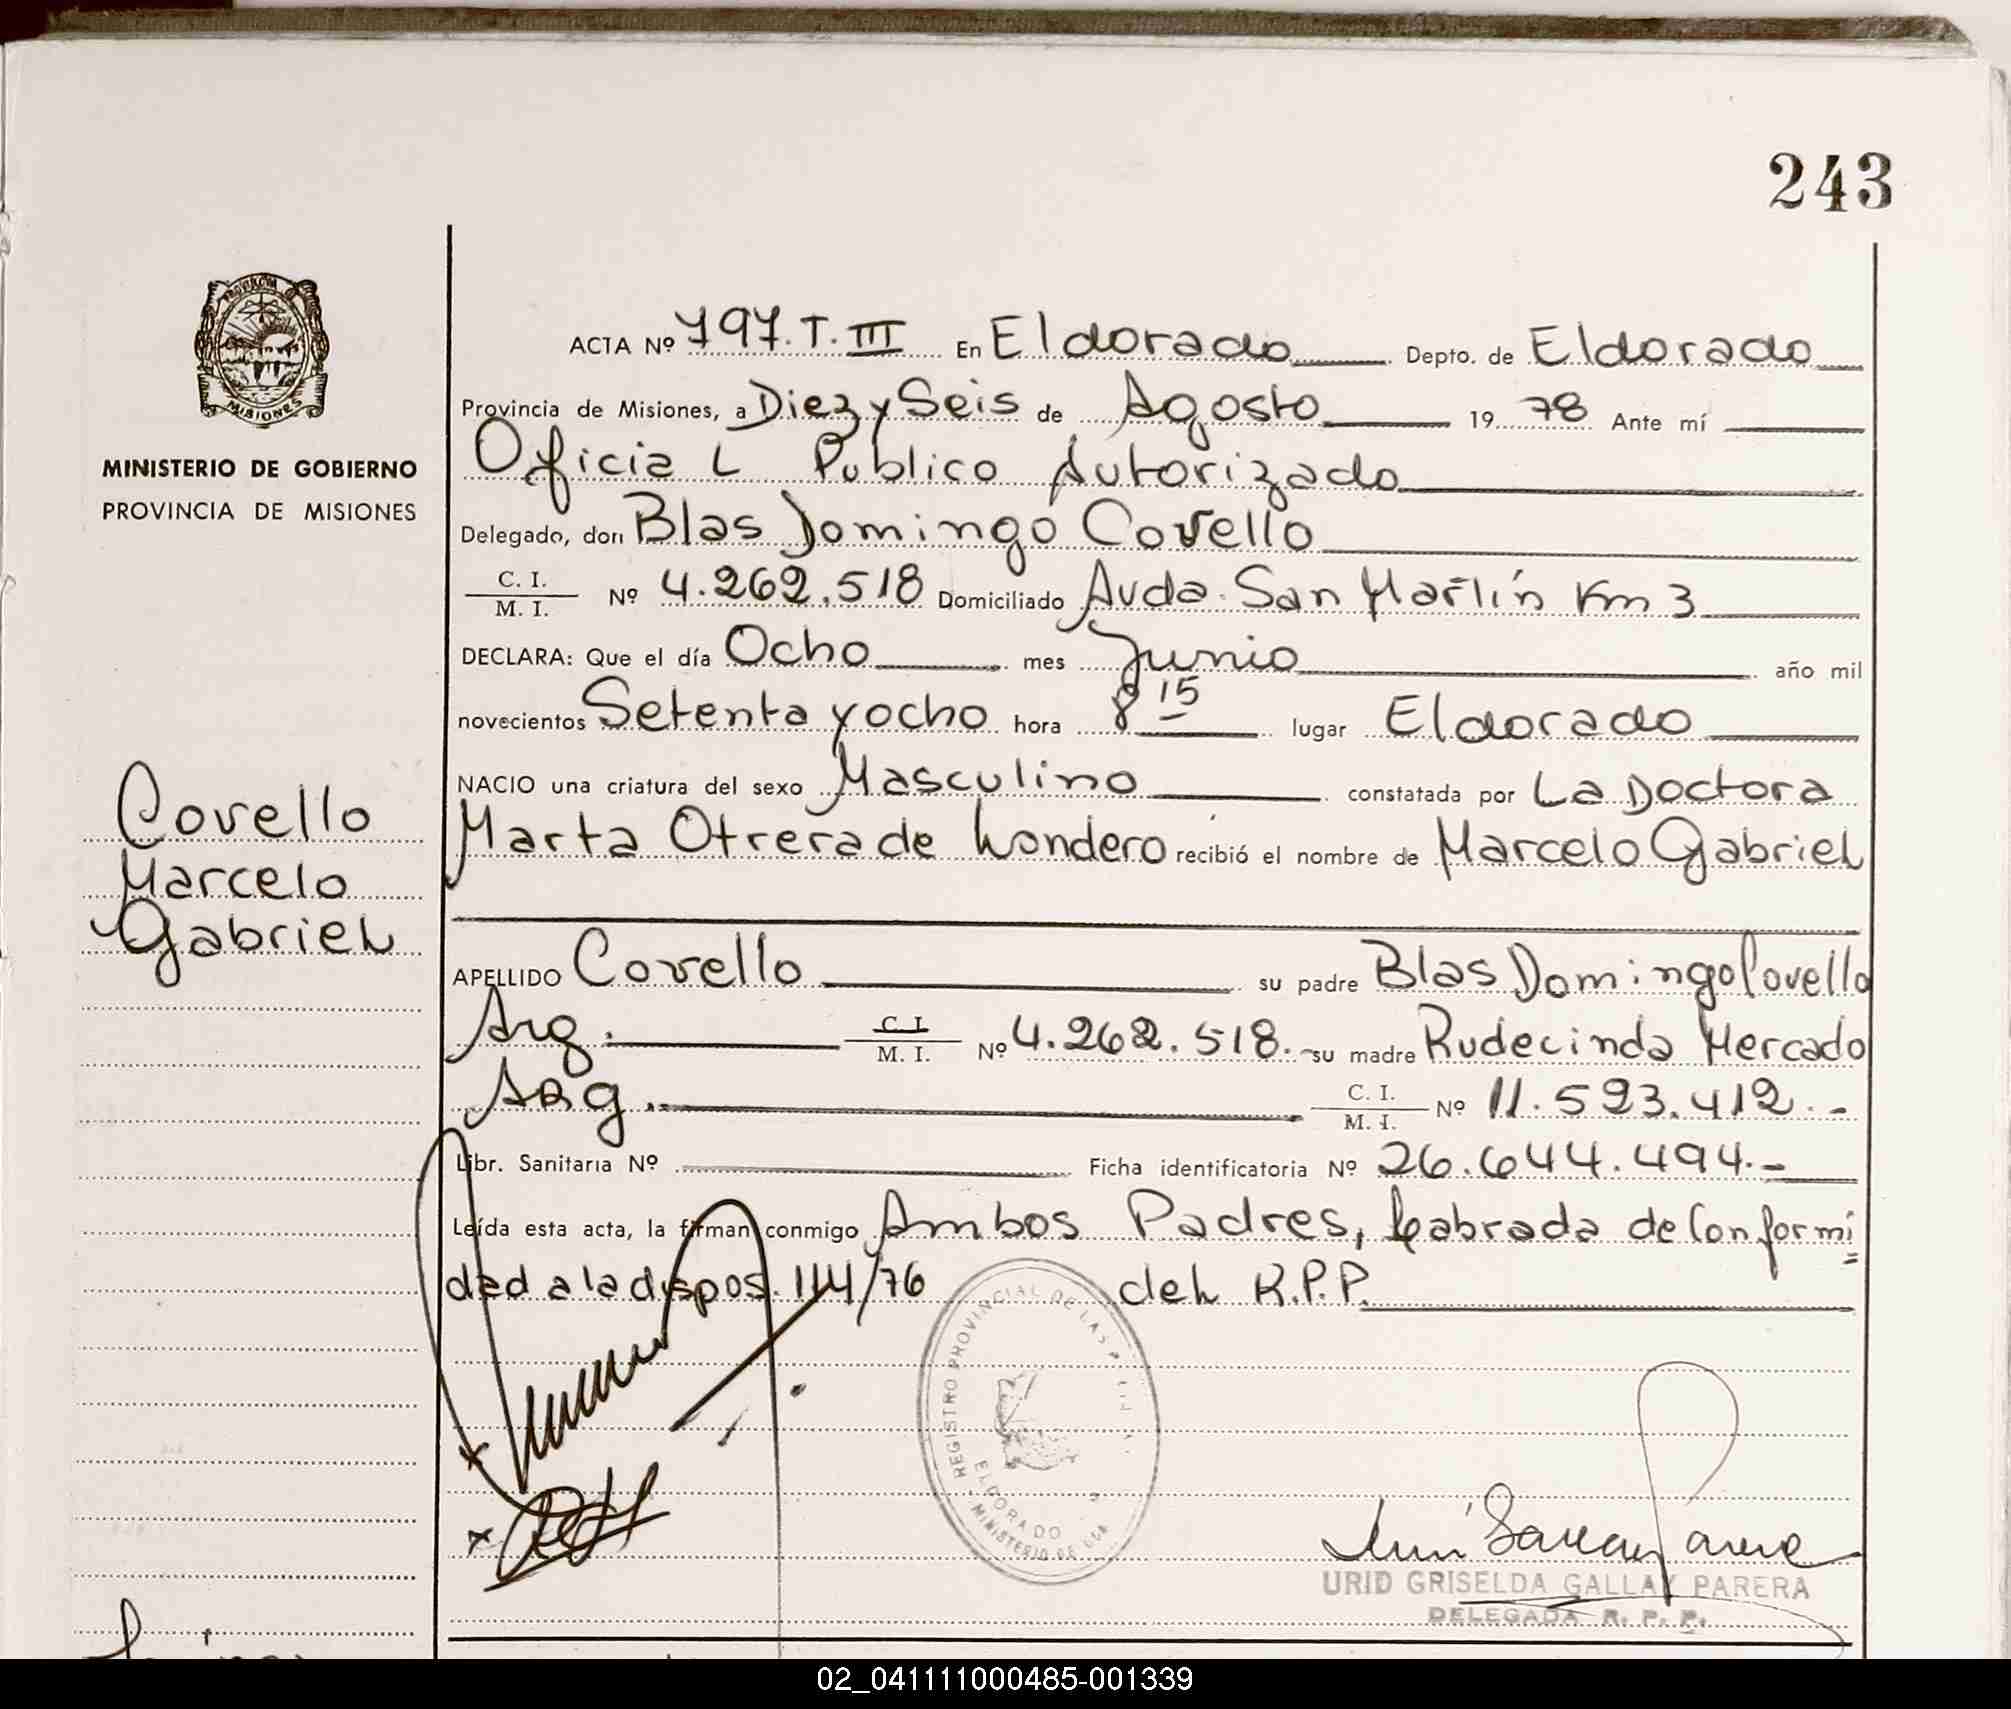 243
PROVINCIA DE
MISIONES
MINISTERIO DE GOBIERNO
PROVINCIA DE MISIONES
Covello
Marcelo
Gabriel
ACTA Nº 797.T.III En Eldorado Depto. de Eldorado
Provincia de Misiones, a Diez y Seis de Agosto 1978 Ante mí
Oficial Publico Autorizado
Delegado, don Blas Domingo Covello
C. I.
M. I. Nº 4.262.518 Domiciliado Avda. San Martín Km 3
DECLARA: Que el día Ocho mes Junio año mil
novecientos Setenta y ocho hora 8 15 lugar Eldorado
NACIO una criatura del sexo Masculino constatada por La Doctora
Marta Otrera de Londero recibió el nombre de Marcelo Gabriel
APELLIDO Covello su padre Blas Domingo Covello
Arg. C. I. M. I. Nº 4.262.518.- su madre Rudecinda Mercado
Arg. C. I. M. I. Nº 11.523.412.-
Libr. Sanitaria Nº Ficha identificatoria Nº 26.644.494.-
Leída esta acta, la firman conmigo Ambos Padres, Labrada de Conformi
dad a la dispos. 114/76 del R.P.P.
REGISTRO PROVINCIAL DE LAS
ELDORADO
MINISTERIO DE
URID GRISELDA GALLAY PARERA
DELEGADA R. P. P.
02_041111000485-001339